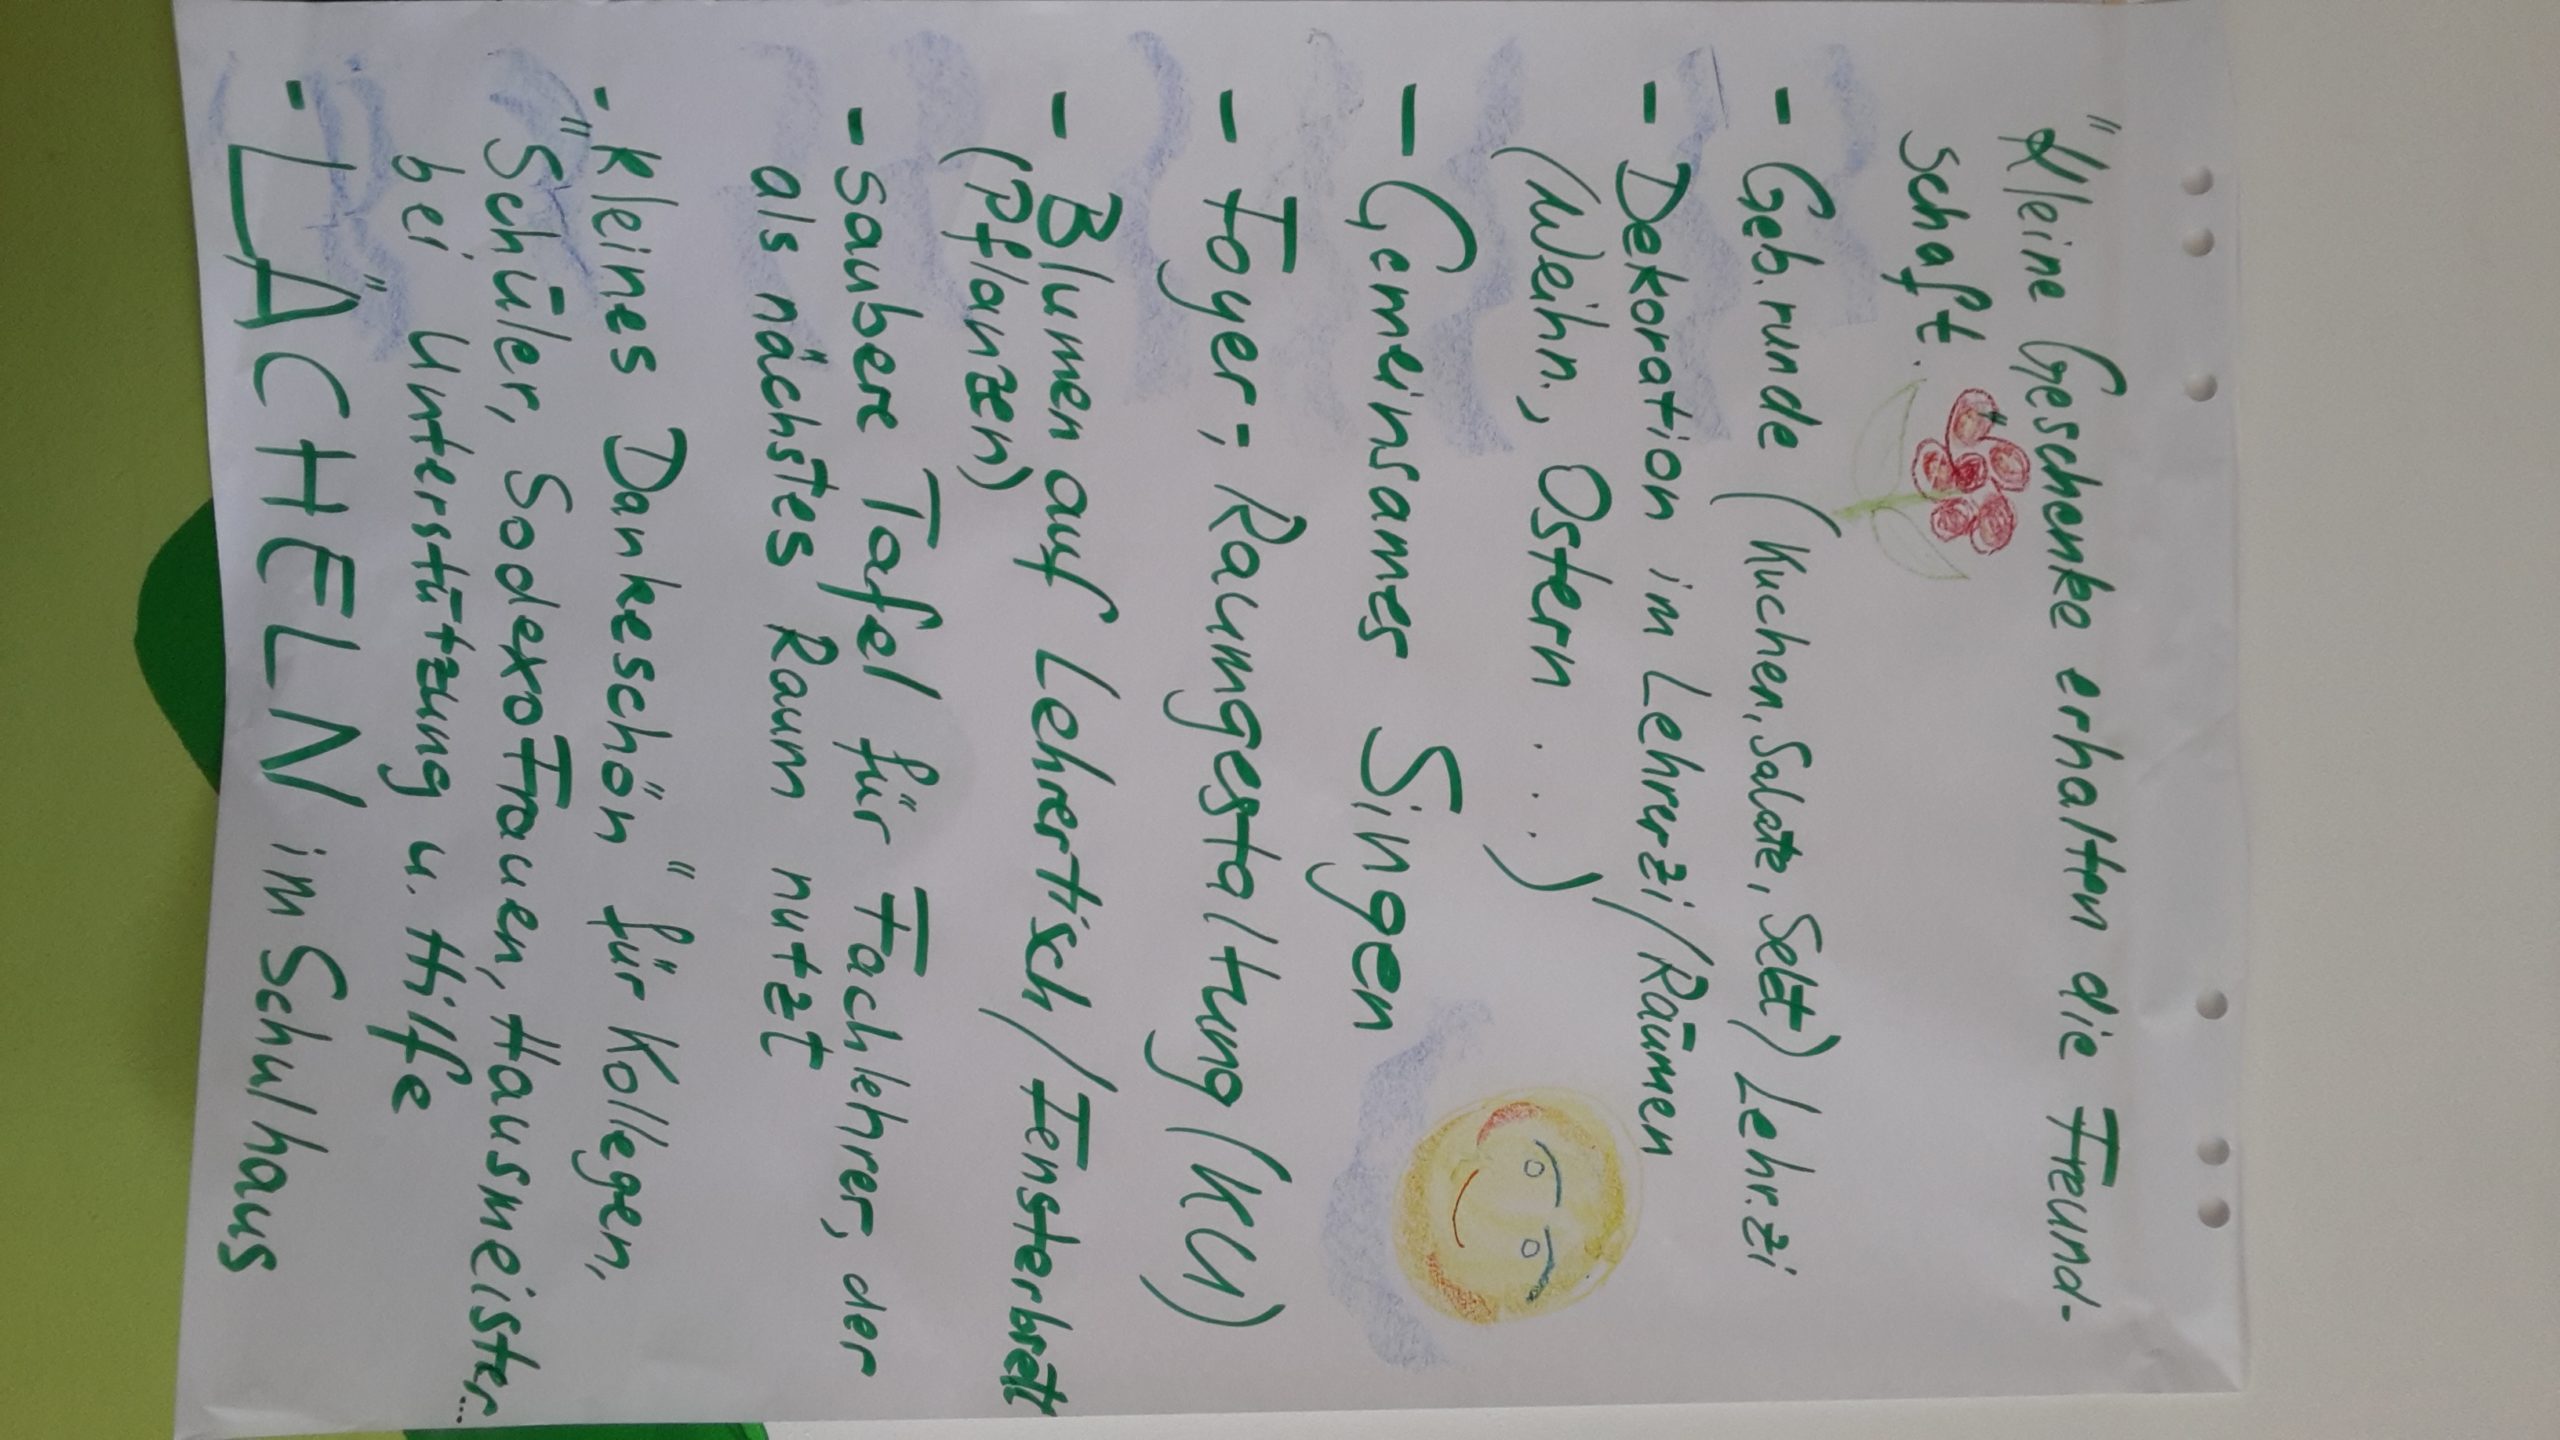 "Kleine Geschenke erhalten die Freund-
schaft."
- Geb.runde (Kuchen, Salate, Sekt) Lehr.zi
- Dekoration im Lehrerzi/Räumen
(Weihn., Ostern ....)
- Gemeinsames Singen
- Foyer; Raumgestaltung (KU)
- Blumen auf Lehrertisch/Fensterbrett
(Pflanzen)
- saubere Tafel für Fachlehrer, der
als nächstes Raum nutzt
- "kleines Dankeschön" für Kollegen,
Schüler, Sodexo Frauen, Hausmeister....
bei Unterstützung u. Hilfe
- "LÄCHELN im Schulhaus